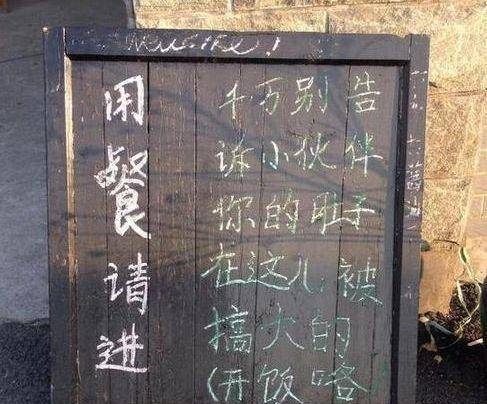 用餐请进
千万别告
诉小伙伴
你的肚子
在这儿被
搞大的
(开饭咯